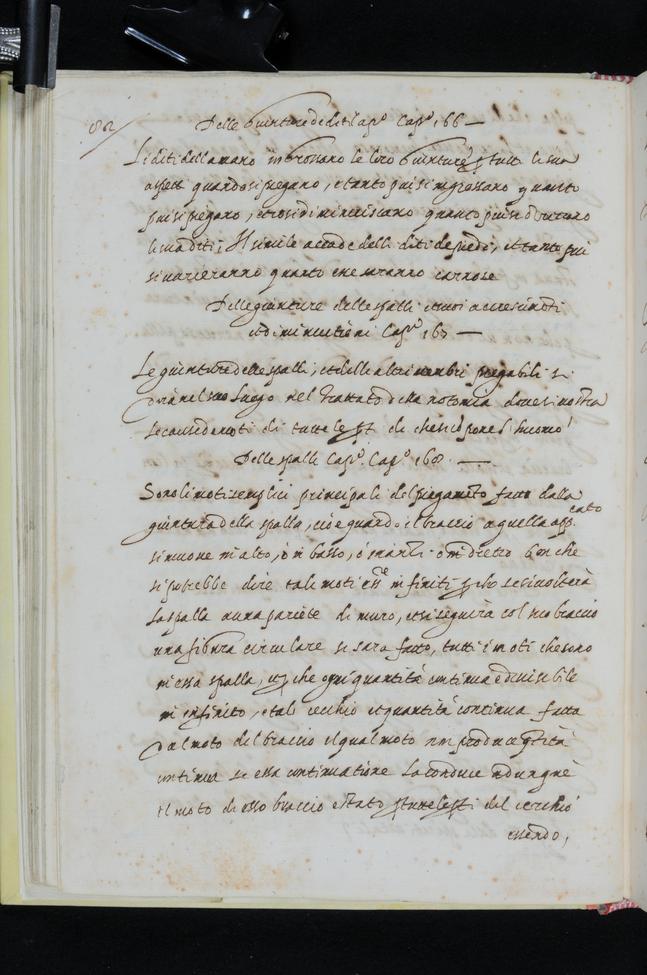 82
Delle Guinture de diti Cap.º Cap.º 166 —
Li diti della mano ingrossano le loro Guinture p tutti li sua
aspetti quando si piegano, e tanto piu s'ingrossano quanto
piu si piegano, et cosi diminuiscano quanto piu se drizzano
le sua diti; Il simile accade delli diti de piedi, et tanto piu
si varieranno quanto che saranno carnose
Delle giunture delle spalli et suoi accrescimenti
et diminutioni Cap.º 167 —
Le guinture delle spalli, et delle altri membri piegabili si
dirà nel suo luogo nel Trattato della notomia dove si mostra
le cause de moti di tutte le pti di che si compone l'huomo
Delle spalli Cap.º Cap.º 168 —
Sono li moti semplici principali del piegamento fatto dalla
giuntura della spalla, cioè quando il braccio a quella appicato
si muove in alto, ò in basso, ò inanti ò in dietro ben che
si potrebbe dire tali moti esse infiniti p che se si volterà
la spalla a una pariete di muro, et si seguirà col suo braccio
una figura circulare si sarà fatto, tutti i moti che sono
in essa spalla, et p che ogni quantità continua è divisibile
in infinito, e tal cerchio et quantità continua fatta
dal moto del braccio il qual moto non produce qtità
continua se essa continuatione la conduce adunque
il moto di esso braccio è stato p tutte le pti del cerchio
essendo,